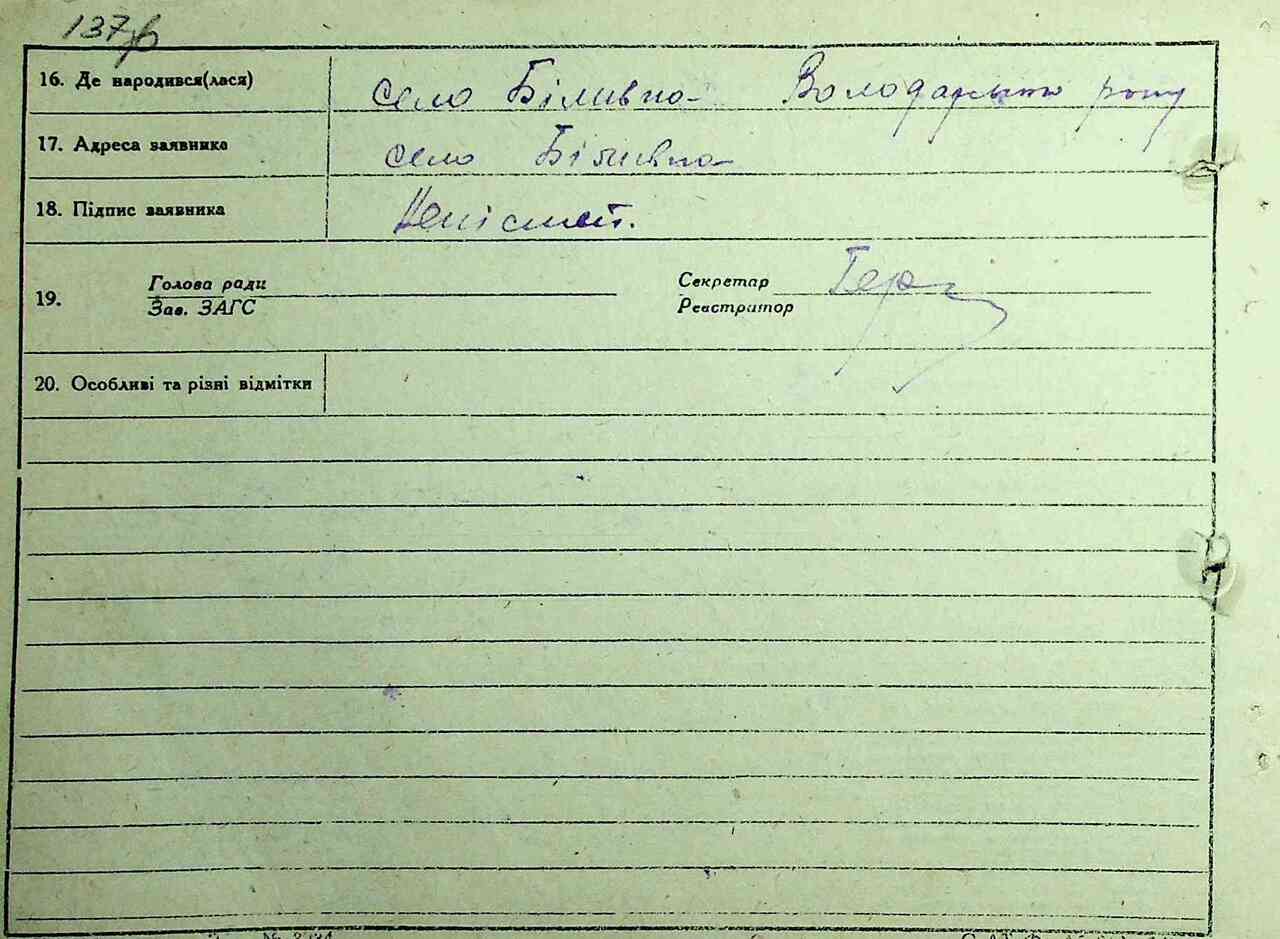 137зв
16. Де народився(лася) село Біливка Володарського р-ну
17. Адреса заявника село Біливка
18. Підпис заявника Неписмен.
Голова ради Секретар
19.
Зав. ЗАГС Реєстратор
20. Особливі та різні відмітки